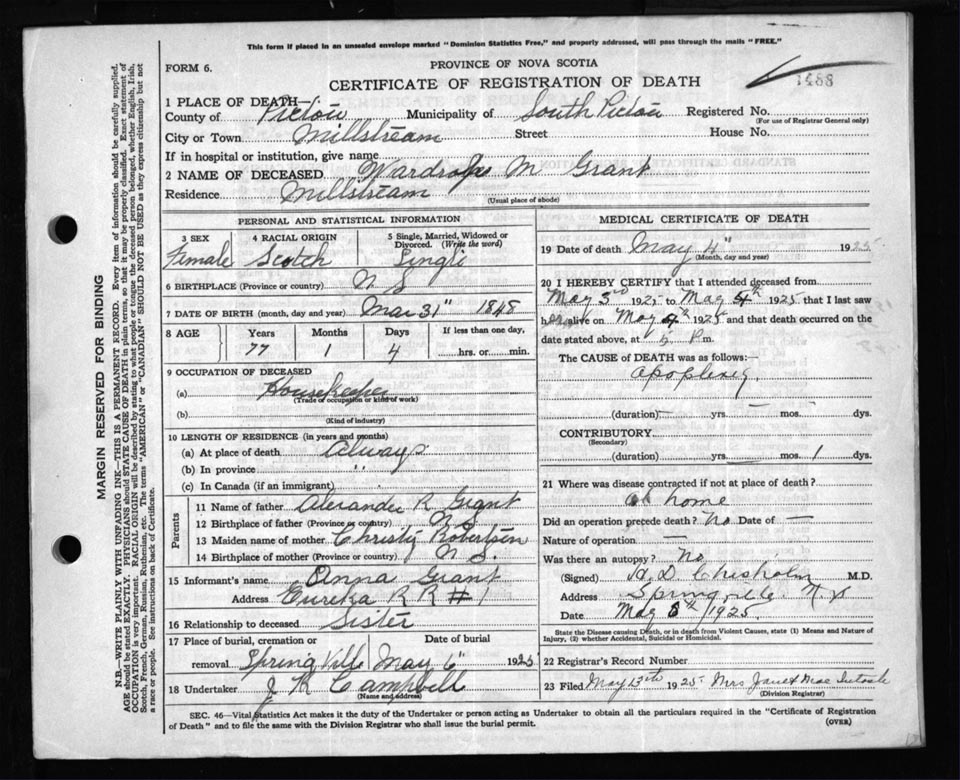 This form if placed in an unsealed envelope marked "Dominion Statistics Free," and properly addressed, will pass through the mails "FREE."
FORM 6.
PROVINCE OF NOVA SCOTIA
CERTIFICATE OF REGISTRATION OF DEATH
1488
1 PLACE OF DEATH—
County of Pictou Municipality of South Pictou Registered No.
(For use of Registrar General only)
City or Town Millstream Street House No.
If in hospital or institution, give name
2 NAME OF DECEASED Wardrope M Grant
Residence Millstream
(Usual place of abode)
PERSONAL AND STATISTICAL INFORMATION
3 SEX 4 RACIAL ORIGIN 5 Single, Married, Widowed or Divorced. (Write the word)
Female Scotch Single
6 BIRTHPLACE (Province or country) N S
7 DATE OF BIRTH (month, day and year) Mar 31" 1848
8 AGE Years Months Days If less than one day,
77 1 4 hrs. or min.
9 OCCUPATION OF DECEASED
(a) Housekeeper
(Trade or occupation or kind of work)
(b)
(Kind of industry)
10 LENGTH OF RESIDENCE (in years and months)
(a) At place of death Always
(b) In province "
(c) In Canada (if an immigrant)
Parents
11 Name of father Alexander R Grant
12 Birthplace of father (Province or country) N S.
13 Maiden name of mother Christy Robertson
14 Birthplace of mother (Province or country) N S.
15 Informant's name Anna Grant
Address Eureka R R # 1
16 Relationship to deceased Sister
17 Place of burial, cremation or removal Spring Ville Date of burial May 6" 1925
18 Undertaker J R Campbell
(Name and address)
MEDICAL CERTIFICATE OF DEATH
19 Date of death May 4" 1925
(Month, day and year)
20 I HEREBY CERTIFY that I attended deceased from
May 3rd 1925 to May 4th 1925 that I last saw
her alive on May 4th 1925 and that death occurred on the
date stated above, at 5 P m.
The CAUSE OF DEATH was as follows:—
apoplexy.
(duration) — yrs. — mos. — dys.
CONTRIBUTORY
(Secondary)
(duration) yrs. — mos. 1 dys.
21 Where was disease contracted if not at place of death?
at home
Did an operation precede death? No Date of —
Nature of operation —
Was there an autopsy? No
(Signed) Chisholm M.D.
Address Springville. N S
Date May 8th 1925
State the Disease causing Death, or in death from Violent Causes, state (1) Means and Nature of Injury, (2) whether Accidental, Suicidal or Homicidal.
22 Registrar's Record Number
23 Filed May 13th 1925 Mrs Janet MacIntosh
(Division Registrar)
SEC. 46—Vital Statistics Act makes it the duty of the Undertaker or person acting as Undertaker to obtain all the particulars required in the "Certificate of Registration
of Death" and to file the same with the Division Registrar who shall issue the burial permit.
(OVER)
MARGIN RESERVED FOR BINDING
N.B.—WRITE PLAINLY WITH UNFADING INK—THIS IS A PERMANENT RECORD. Every item of information should be carefully supplied.
AGE should be stated EXACTLY. PHYSICIANS should STATE CAUSE OF DEATH in plain terms, so that it may be properly classified. Exact statement of
OCCUPATION is very important. RACIAL ORIGIN will be described by stating to what people or tongue the deceased person belonged, whether English, Irish,
Scotch, French, German, Russian, Ruthenian, etc. The terms "AMERICAN" or "CANADIAN" SHOULD NOT BE USED as they express citizenship but not
a race or people. See instructions on back of Certificate.